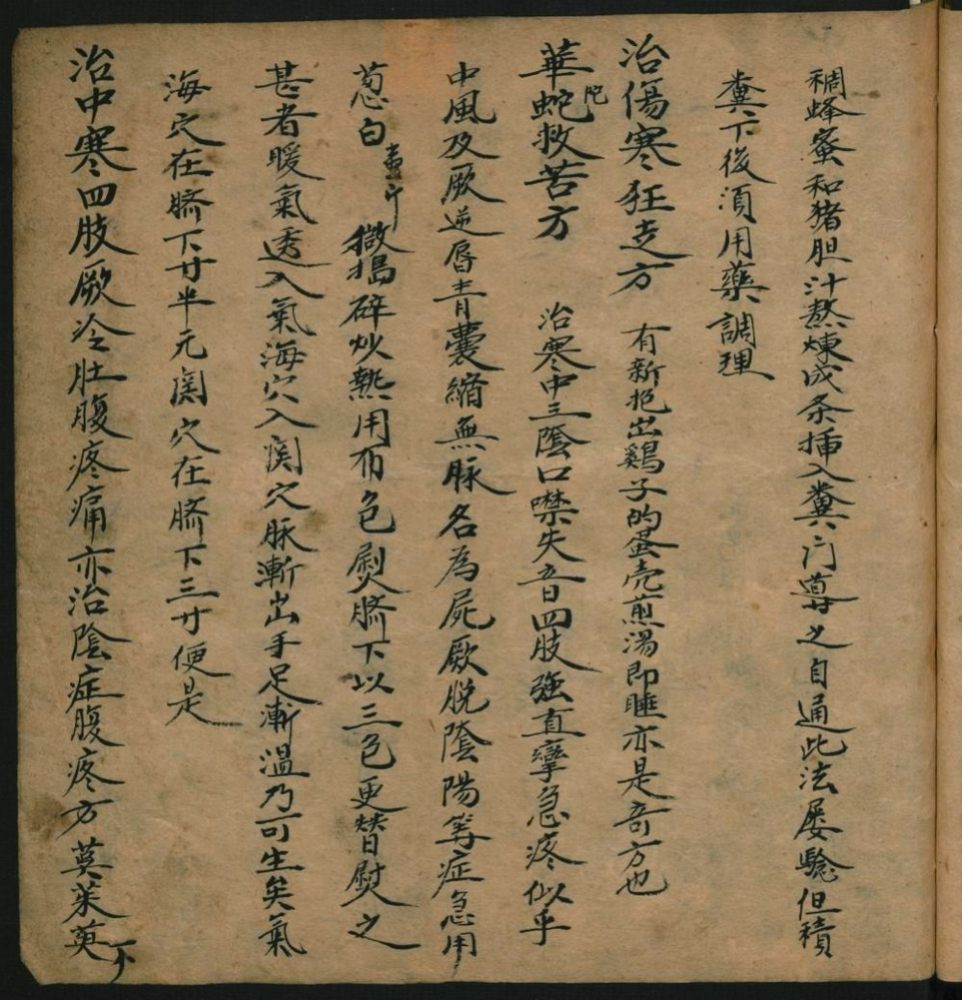 稠蜂蜜和猪胆汁熬煉成条揷入糞门導之自通此法屡騐但積
糞下後須用藥調理
治傷寒狂走方 有新抱出鷄子的蛋壳煎湯即睡亦是奇方也
華蛇陀救苦方 治寒中三陰口噤失音四肢強直攣急疼似乎
中風及厥逆唇青囊縮無脉名為屍厥脱陰陽等症急用
葱白壹斤 微搗碎炒熱用布包熨臍下以三包更替熨之
甚者暖氣透入氣海穴入関穴脈漸出手足漸溫乃可生矣氣
海穴在臍下寸半元関穴在臍下三寸便是
治中寒四肢厥冷肚腹疼痛亦治陰症腹疼方 茱萸